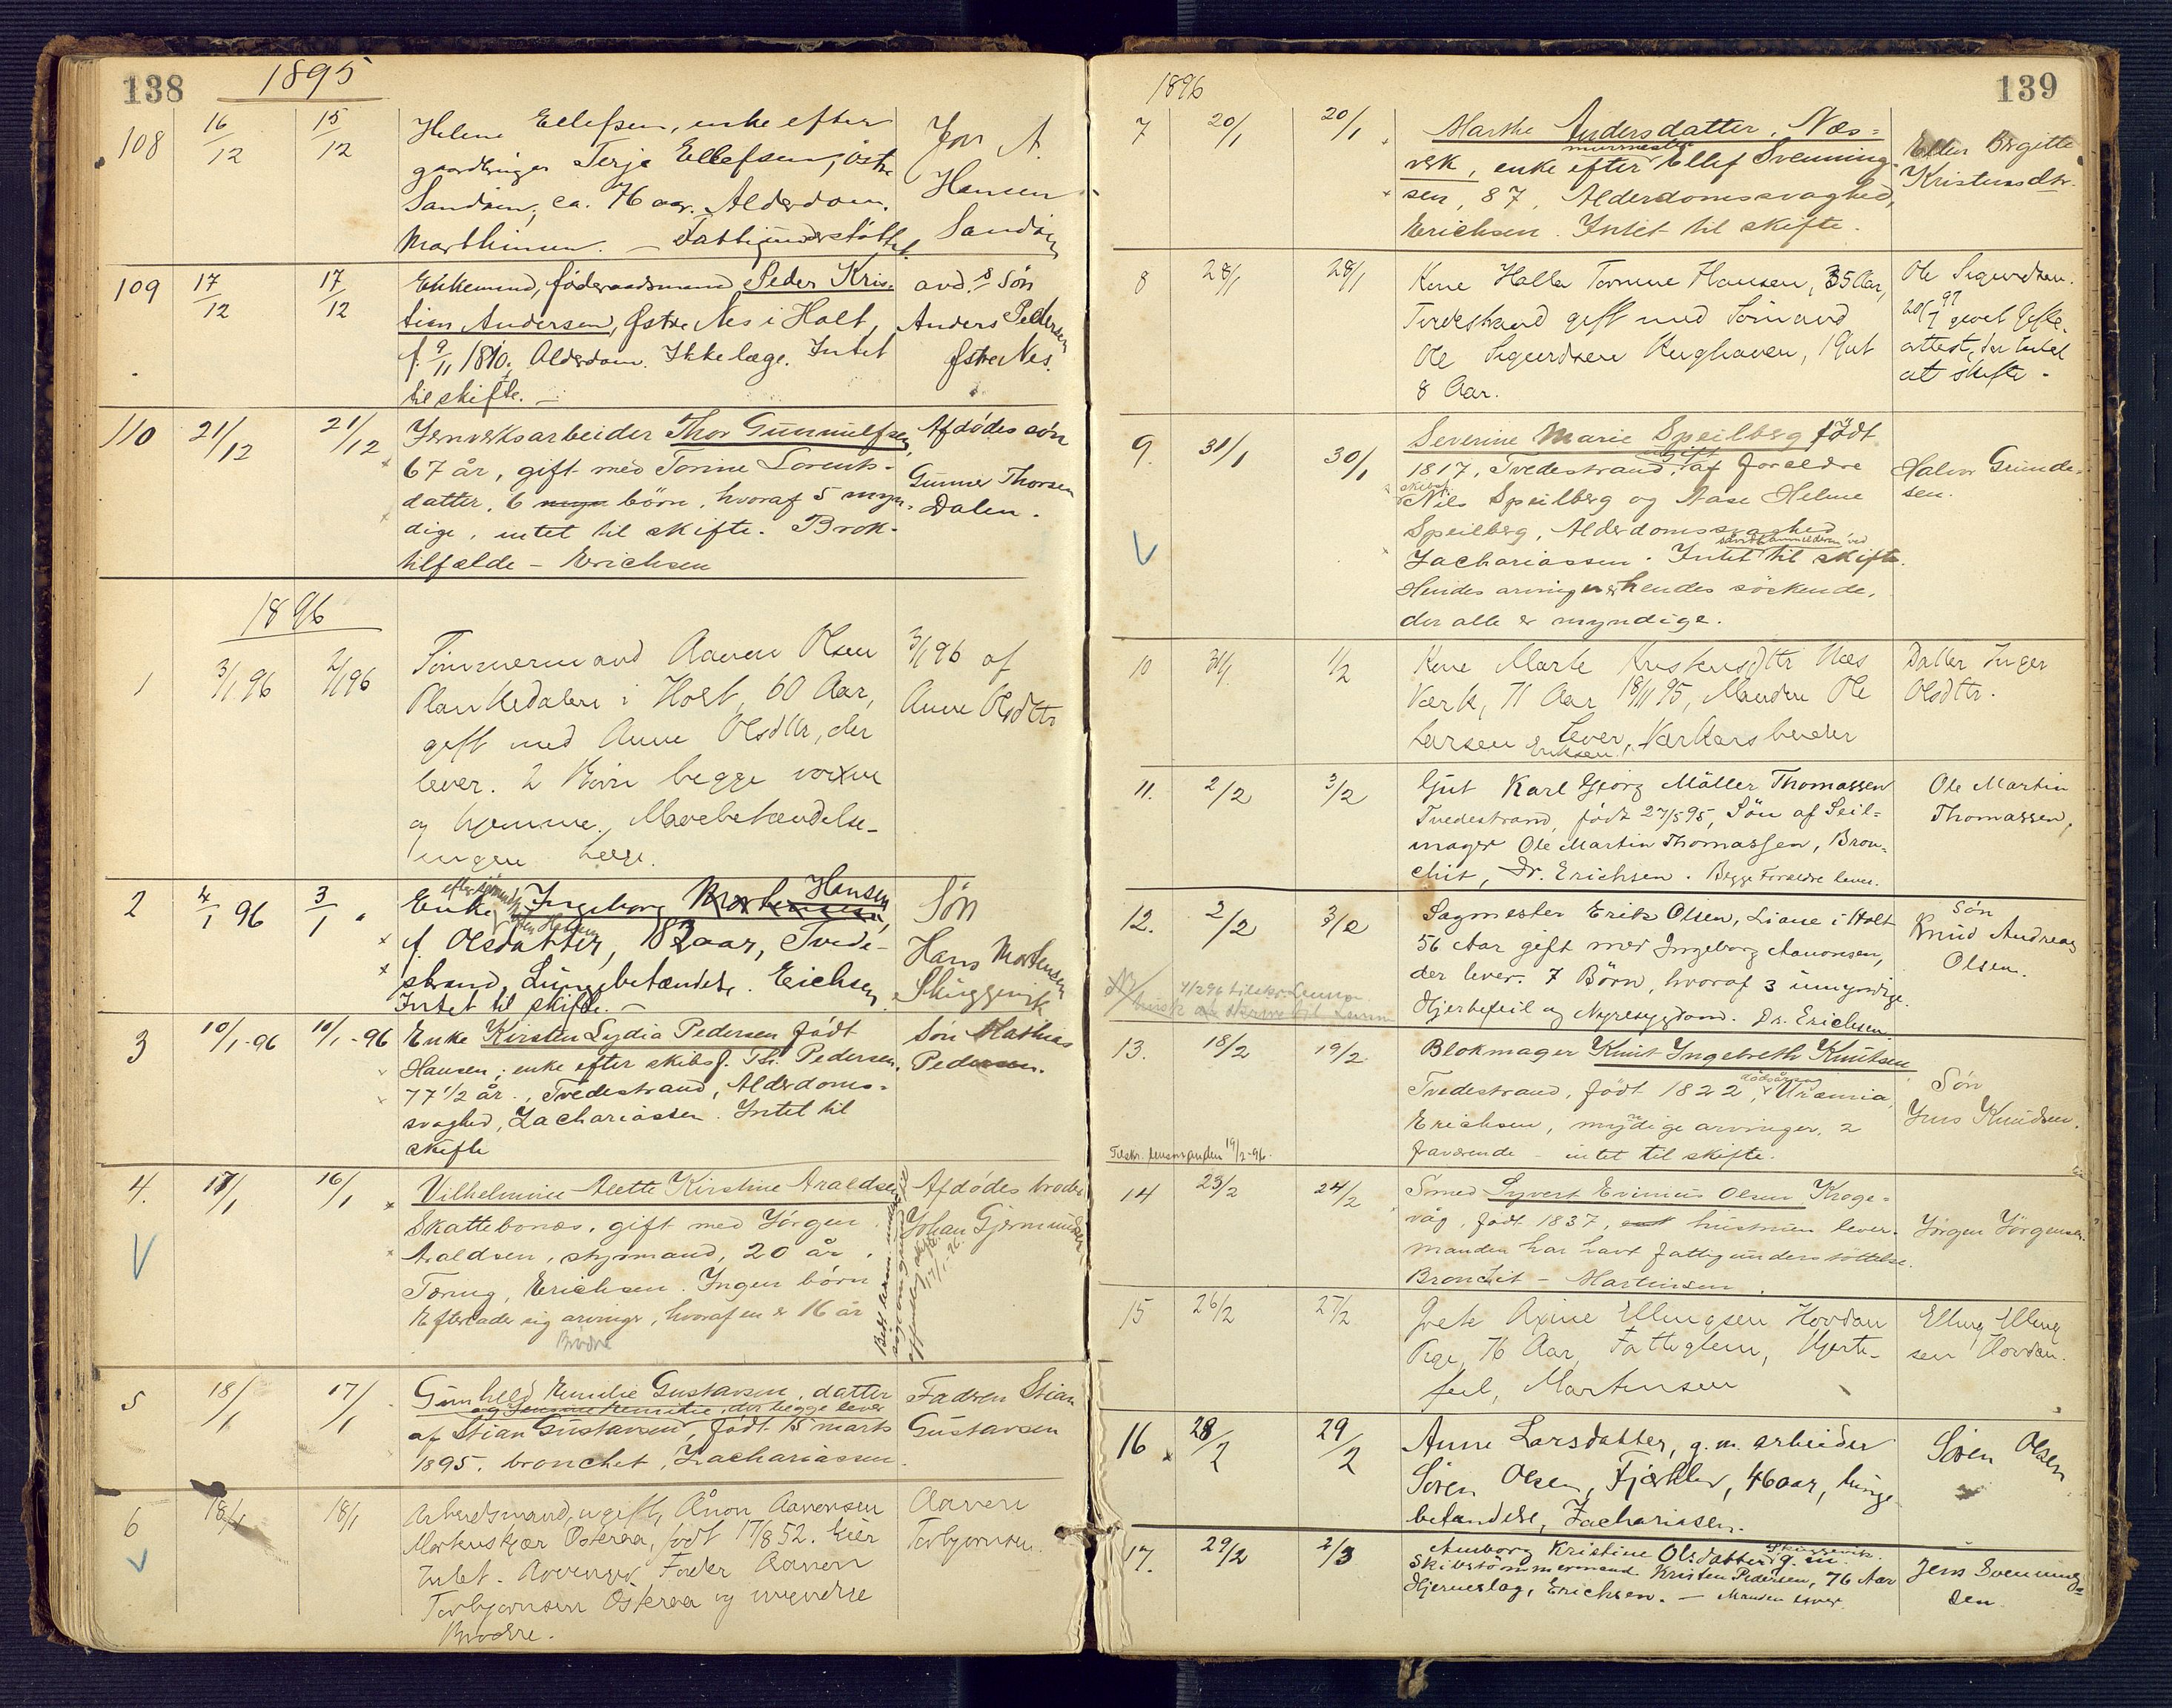 138
1895
108 16/12 15/12 Helene Ellefsen, enke efter
gaardbruger Terje Ellefsen, östre
Sandöen, ca. 76 aar. Alderdom.
Marthinsen. — Fattigunderstöttet.
Jon A.
Hansen
Sandöen
109 17/12 17/12 Enkemand, föderaadsmand Peder Kris-
tian Andersen, Östre Nes i Holt,
f. 9/11 1810. Alderdom. Ikke læge. Intet
til skifte. —
Søn
Anders Pedersen
Østre Nes.
110 21/12 21/12 Jernverksarbeider Thor Gunnulfsen,
67 år, gift med Torine Lorents-
datter, 6 börn, hvoraf 5 myn-
dige, intet til skifte. Brok-
tilfælde — Erichsen
Afdödes sön
Gunner Thorsen
Dalen.
1896
1 3/1 96 2/1 96 Tömmermand Aanen Olsen
Plankedalen i Holt, 60 Aar,
gift med Anne Olsdtr, der
lever. 2 Börn begge voxne
og hjemme. Mavebetændelse-
ingen Læge.
3/1 96 af
Anne Olsdtr
2 4/1 96 3/1 Enke efter sjömand Ingeborg Mortensen Hansen,
f. Olsdatter, 82 aar, Tvede-
strand, Lungebetændelse. Erichsen.
Intet til skifte. —
Sön
Hans Mortensen
Skuggevik
3 10/1-96 10/1-96 Enke Kirsten Lydia Pedersen född
Hansen; enke efter skibsf. Th. Pedersen,
77 1/2 år., Tvedestrand, Alderdoms-
svaghed, Zachariassen. Intet til
skifte
Sön Mathias
Pedersen.
4. 17/1 16/1 Vilhelmine Alette Kirstine Araldsen
Skattebonæs, gift med Jörgen
Araldsen, styrmand, 20 år.
Tæring, Erichsen. Ingen börn
Efterlader sig arvinger, hvoraf en er 16 år
Brödre
Afdödes broder
Johan Gjermundsen
17/1-96.
5 18/1 17/1 Gunhild Emilie Gustavsen, datter
og Emilie, der begge lever
af Stian Gustavsen, född 15 marts
1895. bronchet, Zachariassen.
Faderen Stian
Gustavsen
6 18/1 18/1 Arbeidsmand, ugift, Ånon Aanonsen
Österaa, født 17/8 52. Eier
Intet. Arvinger Fader Aanen
Torbjörnsen Österaa og myndige
Brödre.
Aanen
Torbjörnsen.
139
1896
7 20/1 20/1 Marthe Andersdatter, Næs-
verk, enke efter murmester Ellef Svenning-
sen, 87, Alderdomssvaghed,
Erichsen. Intet til skifte.
Ellen Birgitte
Kristensdtr.
8 28/1 28/1 Kone Halla Tomine Hansen, 35 Aar,
Tvedestrand gift med Sömand
Ole Sigurdsen, 1 Gut
8 Aar.
Ole Sigurdsen.
attest, der Intet
at skifte.
9. 31/1 30/1 Severine Marie Speilberg född
1817, Tvedestrand, ugift, af forældre
skibsf. Nils Speilberg og Aase Helene
Speilberg, Alderdomssvaghed
Zachariassen. Intet såvidt anmelderen ved til skifte.
Hendes arvinger er hendes söskende,
der alle er myndige.
Halvor Gunde-
sen.
10 31/1 1/2 Kone Marte Kristensdtr Næs
Værk, 71 Aar 18/11 95, Manden Ole
Larsen lever, Værkarbeider
Eriksen.
Datter Inger
Olsdtr.
11. 2/2 3/2 Gut Karl Georg Möller Thomassen
Tvedestrand, född 27/5 95, Sön af Seil-
mager Ole Martin Thomassen, Bron-
chit, Dr. Erichsen. Begge Forældre lever.
Ole Martin
Thomassen.
12. 2/2 3/2 Sagmester Erik Olsen, Liane i Holt
56 Aar gift med Ingeborg Aanonsen,
der lever. 7 Börn, hvoraf 3 umyndige.
Hjertefeil og Nyresygdom. Dr. Erichsen.
Sön
Knud Andreas
Olsen.
13. 18/2 19/2 Blokmager Knut Ingebreth Knutsen
Tvedestrand, född 1822, Uræmia,
Erichsen, myndige arvinger, 2
fraværende — intet til skifte.
Tilskr. lensmanden 19/2-96.
Sön
Jens Knudsen.
14 23/2 24/2 Smed Syvert Evinius Olsen Kroge-
våg, född 1837, hustruen lever.
manden har havt fattigunderstöttelse.
Bronchit — Martinsen.
Jörgen Jörgensen.
15 26/2 27/2 Grete Axine Ellingsen Hovdan
Pige, 76 Aar, Fattiglem, Hjerte-
feil, Martensen
Elling Elling
sen Hovdan.
16 28/2 29/2 Anne Larsdatter, g. m. arbeider
Sören Olsen, Fjærkleiv, 46 aar, lunge-
betændelse, Zachariasen.
Sören Olsen
17. 29/2 2/3 Anborg Kristine Olsdatter, g. m.
Skibstömmermand Kristen Pedersen, 76 Aar
Hjerneslag, Erichsen. — Manden lever.
Jens Svenning-
sen